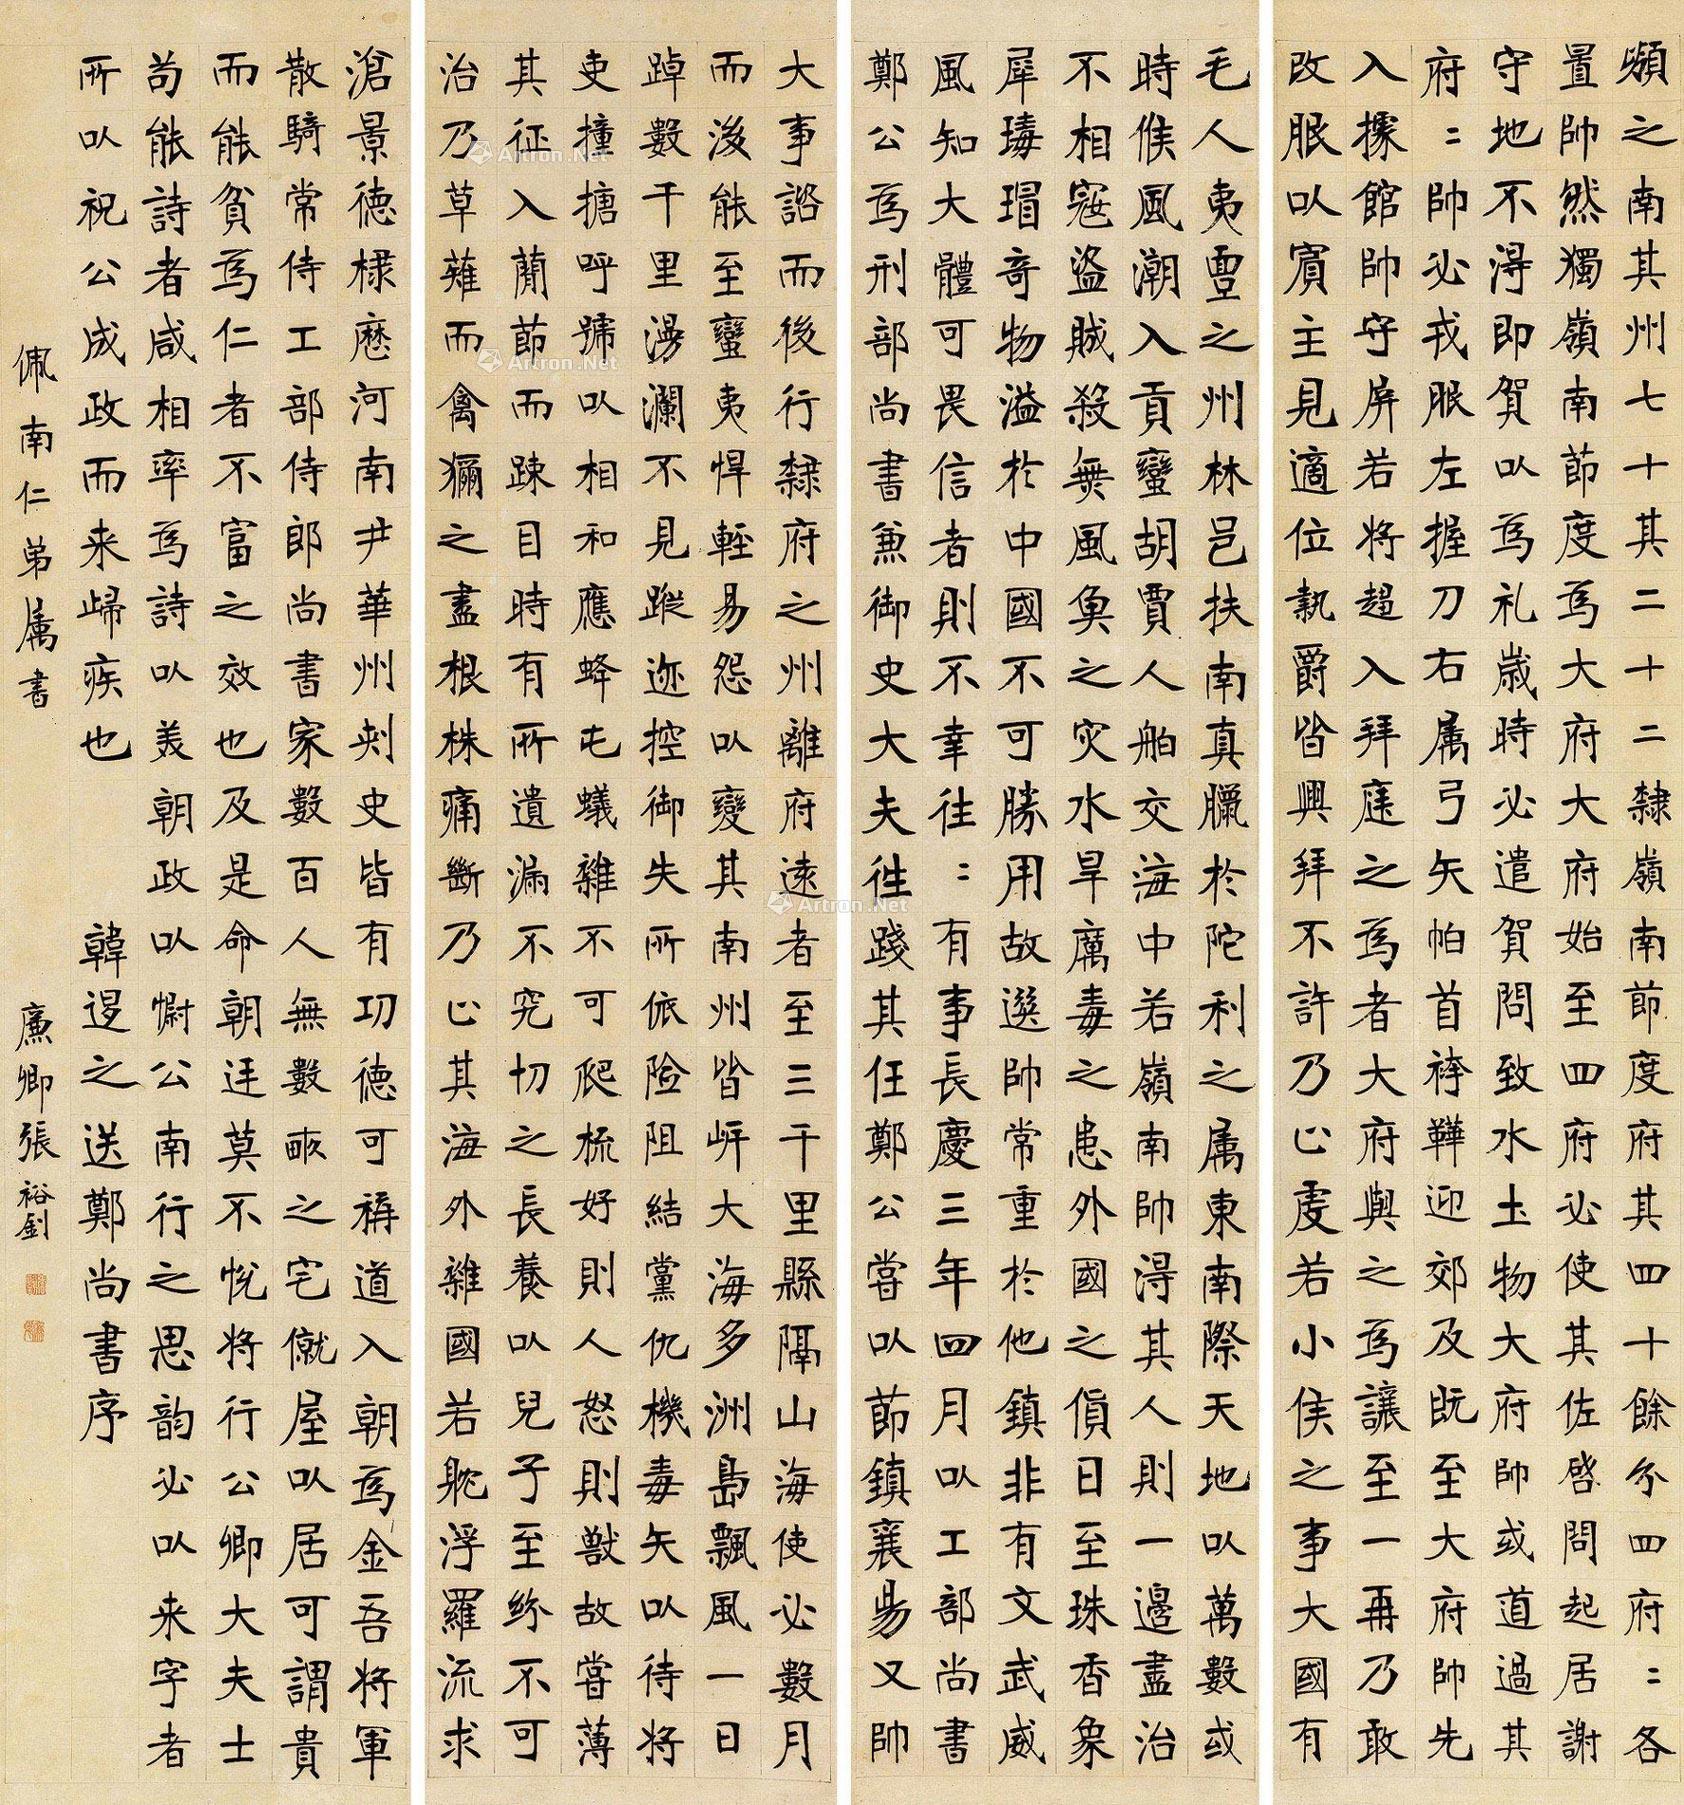 嶺之南其州七十其二十二隸嶺南節度府其四十餘分四府〻各
置帥然獨嶺南節度為大府大府始至四府必使其佐啓問起居謝
守地不得即賀以為礼歲時必遣賀問致水土物大府帥或道過其
府〻帥必戎服左握刀右属弓矢帕首袴鞾迎郊及既至大府帥先
入據館帥守屏若將趨入拜庭之為者大府與之為讓至一再乃敢
改服以賓主見適位執爵皆興拜不許乃止虔若小侯之事大國有
毛人夷亶之州林邑扶南真臘於陀利之属東南際天地以萬數或
時候風潮入貢蠻胡賈人舶交海中若嶺南帥得其人則一邊盡治
不相寇盜賊殺無風魚之灾水旱厲毒之患外國之貨日至珠香象
犀瑇瑁奇物溢於中國不可勝用故選帥常重於他鎮非有文武威
風知大體可畏信者則不幸往〻有事長慶三年四月以工部尚書
鄭公為刑部尚書兼御史大夫往踐其任鄭公嘗以節鎮襄陽又帥
大事諮而後行隸府之州離府遠者至三千里縣隔山海使必數月
而後能至蠻夷悍輕易怨以變其南州皆岸大海多洲島飄風一日
踔數千里漫瀾不見蹤迹控御失所依險阻結黨仇機毒矢以待將
吏撞搪呼號以相和應蜂屯蟻雜不可爬梳好則人怒則獸故嘗薄
其征入簡節而疎目時有所遺漏不究切之長養以兒子至紛不可
治乃草薙而禽獮之盡根株痛斷乃止其海外雜國若躭浮羅流求
滄景德棣歷河南尹華州刺史皆有功德可稱道入朝為金吾將軍
散騎常侍工部侍郎尚書家數百人無數畝之宅僦屋以居可謂貴
而能貧為仁者不富之效也及是命朝廷莫不悅將行公卿大夫士
苟能詩者咸相率為詩以美朝政以慰公南行之思韵必以来字者
所以祝公成政而来歸疾也 韓退之送鄭尚書序
佩南仁弟属書 廉卿張裕釗
Artron.Net
Artron.Net
Artron.Net